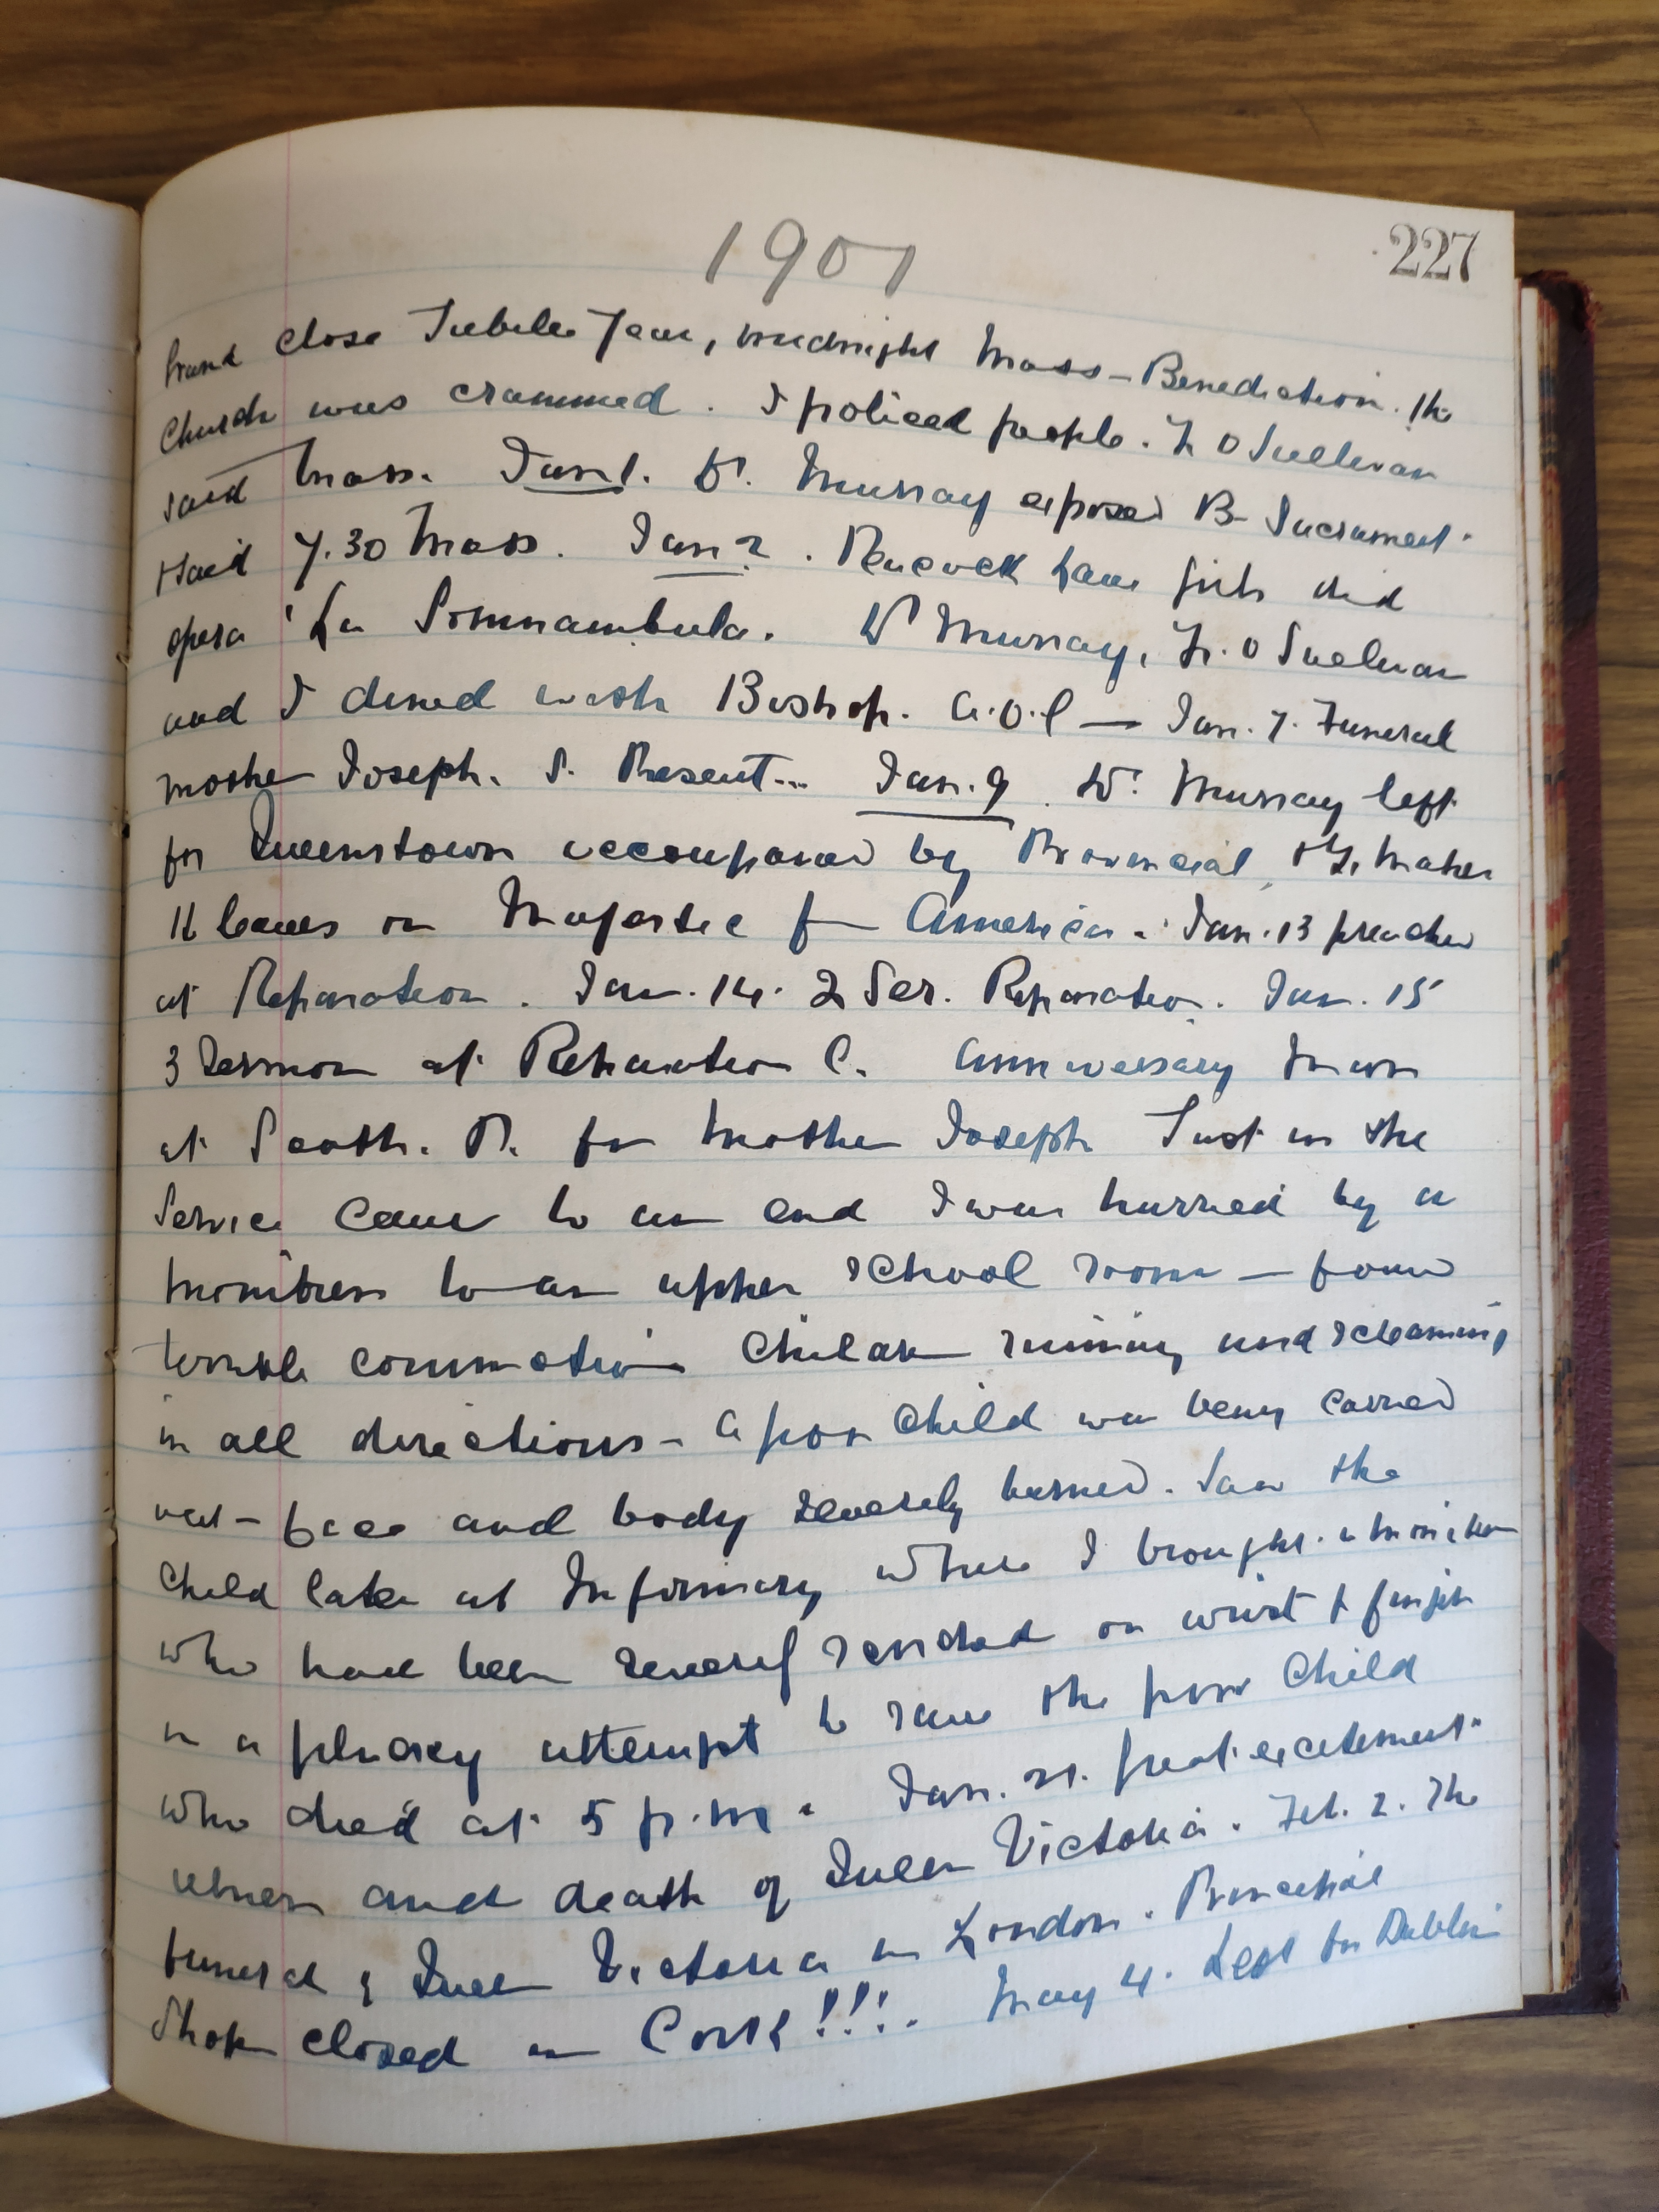 1901
227
Grand close Jubilee Year, midnight Mass - Benediction. The
Church was crammed. I policed people. Fr O Sullivan
said Mass. Jan 1. Dr. Murray exposed B. Sacrament.
I said 7.30 Mass. Jan 2. Peacock Lane girls did
opera 'La Somnambula. Dr Murray, Fr. O Sullivan
and I dined with Bishop. A.O.C — Jan. 7. Funeral
mother Joseph. S. Present... Jan. 9. Dr. Murray left
for Queenstown accompanied by Provincial, & Fr. Maher
He leaves on Majestic for America. Jan. 13 preached
at Reparation. Jan. 14. 2 Ser. Reparation. Jan. 15
3 Sermon at Reparation C. Anniversary Mass
at South. P. for Mother Joseph Just as the
Service came to an end I was hurried by a
monitress to an upper school room — found
terrible commotion Children running and screaming
in all directions - A poor child was being carried
out - face and body severely burned. Saw the
Child later at Infirmary where I brought a monitress
who had been severely scorched on wrist & fingers
in a plucky attempt to save the poor child
who died at 5 p.m. Jan. 21. Great excitement
illness and death of Queen Victoria. Feb. 2. The
funeral of Queen Victoria in London. Principal
Shops closed in Cork!!!. May 4. Left for Dublin